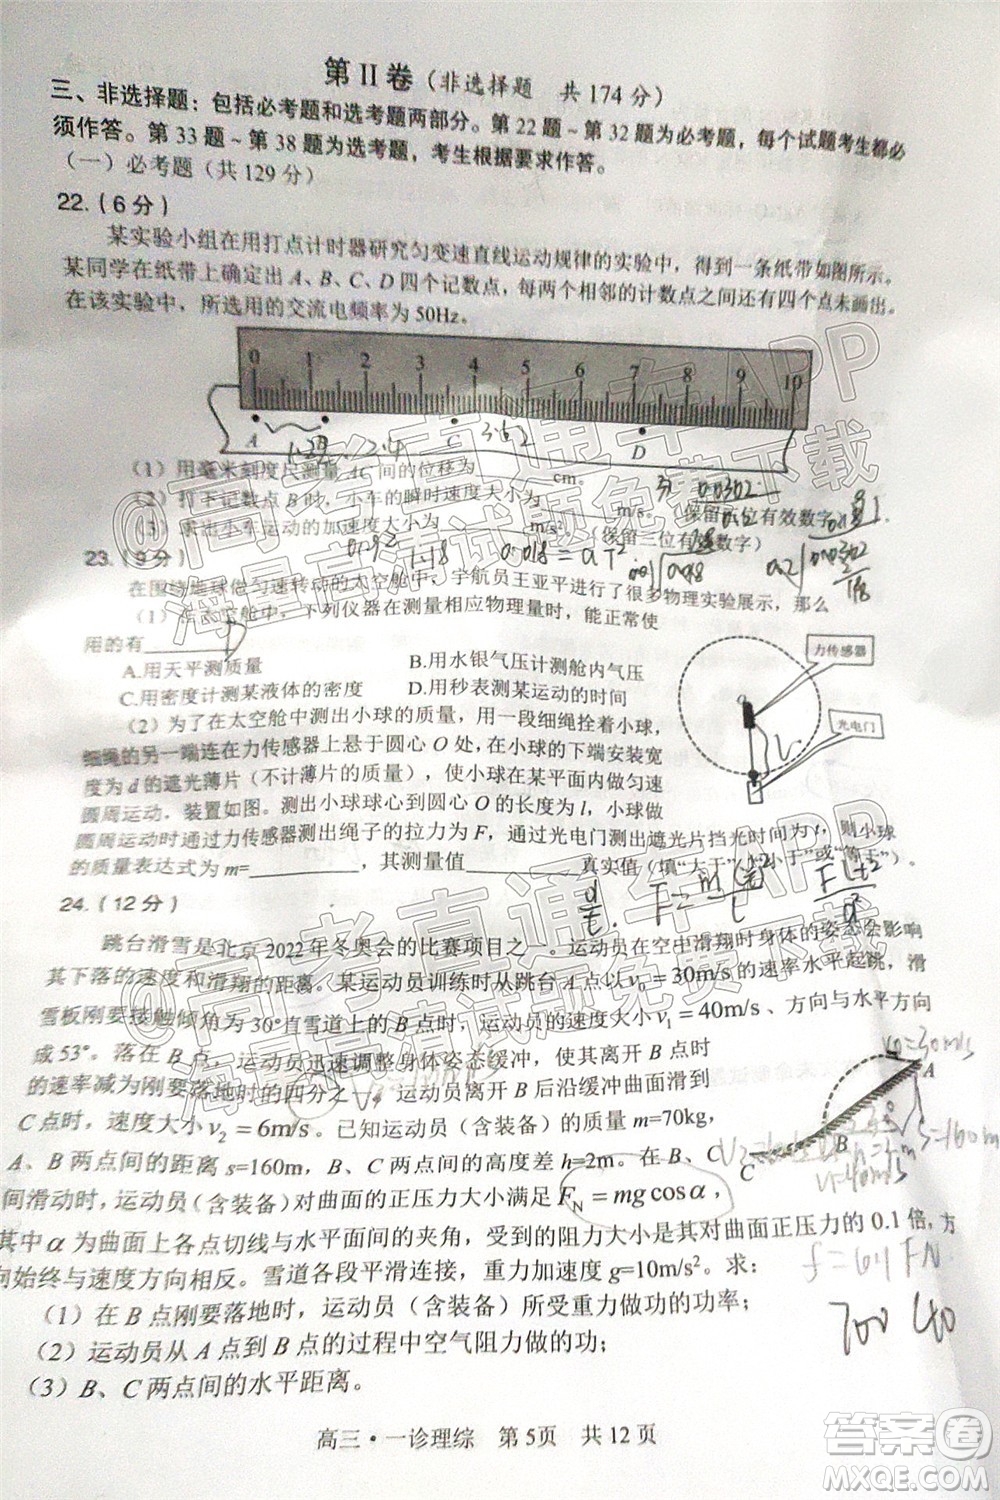 第 II 卷（非选择题 共 174 分）
三、非选择题：包括必考题和选考题两部分。第 22 题~第 32 题为必考题，每个试题考生都必
须作答。第 33 题~第 38 题为选考题，考生根据要求作答。
（一）必考题（共 129 分）
22.（6 分）
某实验小组在用打点计时器研究匀变速直线运动规律的实验中，得到一条纸带如图所示。
某同学在纸带上确定出 A、B、C、D 四个记数点，每两个相邻的计数点之间还有四个点未画出。
在该实验中，所选用的交流电频率为 50Hz。
0 1 2 3 4 5 6 7 8 9 10
A C D
3.62
（1）用毫米刻度尺测量 AC 间的位移为 cm。
（2）打下记数点 B 时，小车的瞬时速度大小为 m/s。（保留三位有效数字）
（3）求出小车运动的加速度大小为 m/s²。（保留三位有效数字）
0.018=aT²
23.（9 分）
在围绕地球做匀速转动的太空舱中，宇航员王亚平进行了很多物理实验展示，那么
（1）在太空舱中，下列仪器在测量相应物理量时，能正常使
用的有 D
A.用天平测质量 B.用水银气压计测舱内气压
C.用密度计测某液体的密度 D.用秒表测某运动的时间
力传感器
光电门
（2）为了在太空舱中测出小球的质量，用一段细绳拴着小球，
细绳的另一端连在力传感器上悬于圆心 O 处，在小球的下端安装宽
度为 d 的遮光薄片（不计薄片的质量），使小球在某平面内做匀速
圆周运动，装置如图。测出小球球心到圆心 O 的长度为 l，小球做
圆周运动时通过力传感器测出绳子的拉力为 F，通过光电门测出遮光片挡光时间为 t，则小球
的质量表达式为 m= ，其测量值 真实值（填“大于”、“小于”或“等于”）。
24.（12 分）
跳台滑雪是北京 2022 年冬奥会的比赛项目之一。运动员在空中滑翔时身体的姿态会影响
其下落的速度和滑翔的距离。某运动员训练时从跳台 A 点以 v₀ = 30m/s 的速率水平起跳，滑
雪板刚要接触倾角为 30°直雪道上的 B 点时，运动员的速度大小 v₁ = 40m/s、方向与水平方向
成 53°。落在 B 点，运动员迅速调整身体姿态缓冲，使其沿雪道
的速率减为刚要落地时的四分之一。运动员在 B 点后沿缓冲曲面滑到
C 点时，速度大小 v₂ = 6m/s。已知运动员（含装备）的质量 m=70kg，
A、B 两点间的距离 s=160m，B、C 两点间的高度差 h=2m。在 B、C
间滑动时，运动员（含装备）对曲面的正压力大小满足 F_N = mg cosα，
其中 α 为曲面上各点切线与水平面间的夹角，受到的阻力大小是其对曲面正压力的 0.1 倍，方
向始终与速度方向相反。雪道各段平滑连接，重力加速度 g=10m/s²。求：
（1）在 B 点刚要落地时，运动员（含装备）所受重力做功的功率；
（2）运动员从 A 点到 B 点的过程中空气阻力做的功；
（3）B、C 两点间的水平距离。
v₀=30m/s
A
B
C
S=160m
v₁=40m/s
700 40
高三·一诊理综 第 5页 共 12 页
@高考直通车APP
海量高清试题免费下载
@高考直通车APP
海量高清试题免费下载
答案圈
MXQE.COM